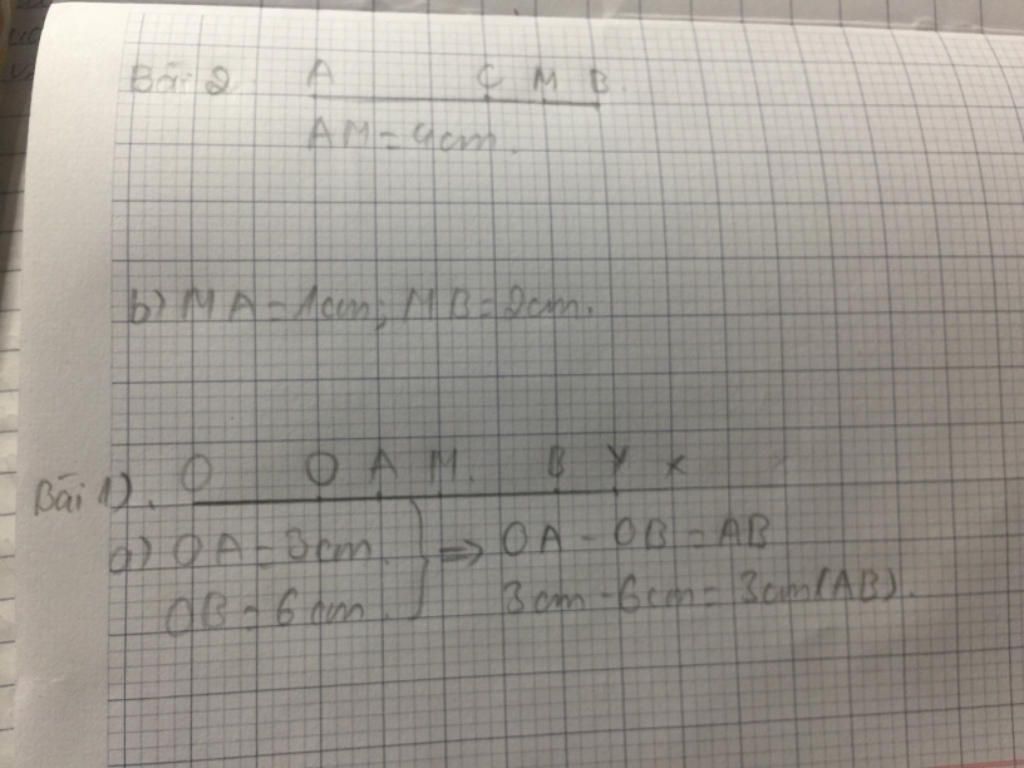 Bài 2 A C M B
AM = 4cm.
b) MA = 1cm; MB = 2cm.
Bài 1). O O A M. B Y x
a) OA = 3cm } => OA - OB = AB
OB = 6cm. 3cm - 6cm = 3cm(AB).